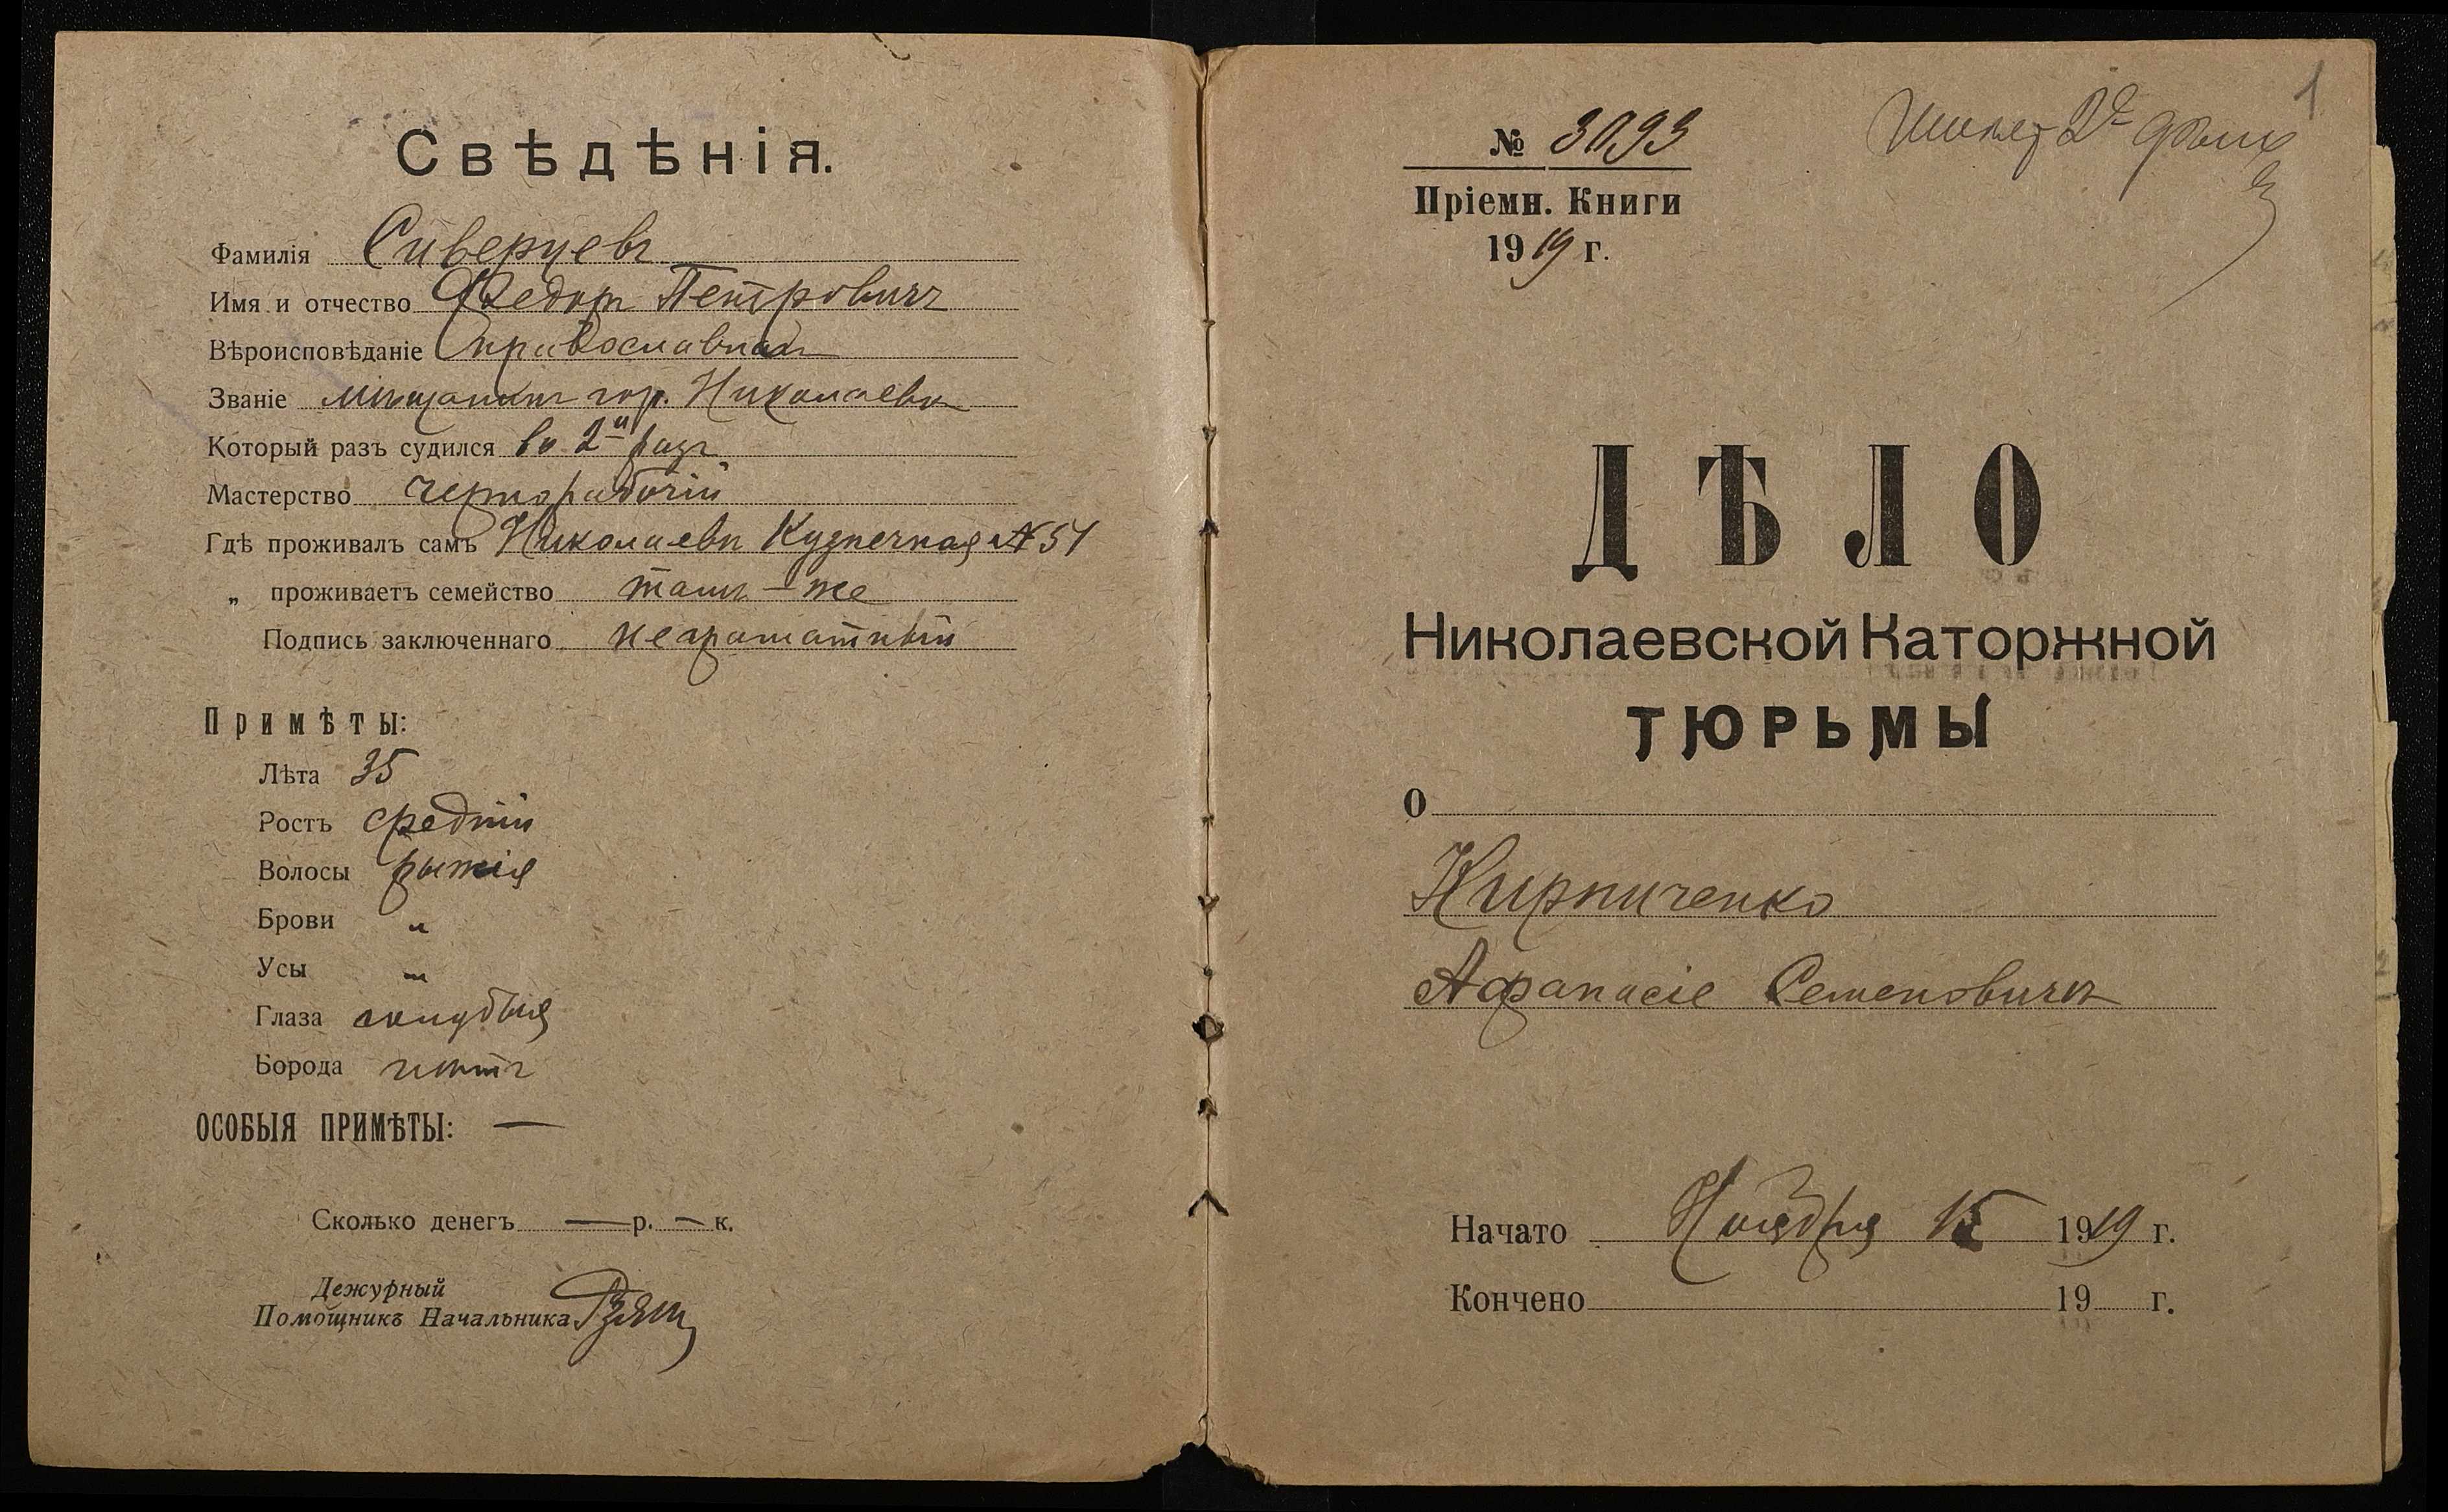 Свѣдѣнія.
Фамилія Сиверцевъ
Имя и отчество Федоръ Петровичъ
Вѣроисповѣданіе православный
Званіе мѣщанинъ гор. Николаева
Который разъ судился во 2й разъ
Мастерство чернорабочій
Гдѣ проживалъ самъ Николаевъ Кузнечная № 51
„ проживаетъ семейство тамъ-же
Подпись заключеннаго неграмотный
Примѣты:
Лѣта 35
Ростъ средній
Волосы рыжія
Брови "
Усы "
Глаза голубыя
Борода
ОСОБЫЯ ПРИМѢТЫ: —
Сколько денегъ — р. — к.
Дежурный
Помощникъ Начальника
1
№ 3093
Пріемн. Книги
1919 г.
ДѢЛО
Николаевской Каторжной
ТЮРЬМЫ
О
Кирпиченко
Афанасіе Семеновичѣ
Начато Ноября 15 1919 г.
Кончено 19 г.